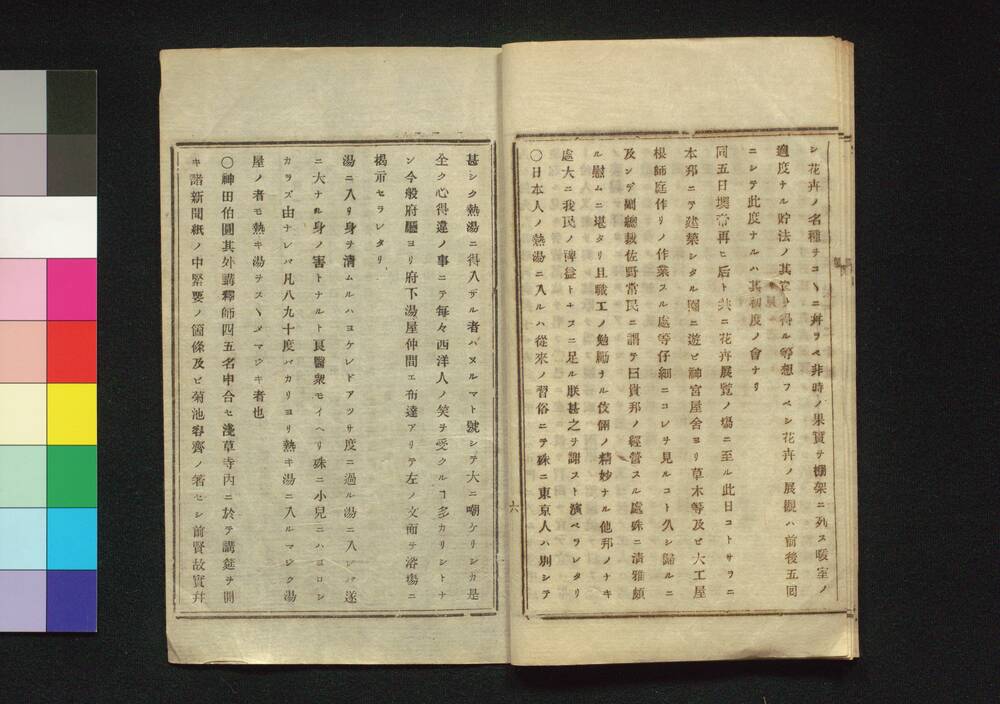 シ花卉ノ名種ヲコヽニ幷ヲベ非時ノ果實ヲ棚架ニ列ス暖室ノ
適度ナル貯法ノ其宜ヲ得ル等想フベシ花卉ノ展觀ハ前後五回
ニシテ此度ナルハ其初度ノ會ナリ
同五日墺帝再ヒ后ト共ニ花卉展覽ノ塲ニ至ル此日コトサラニ
本邦ニテ建築シタル園ニ遊ビ神宮屋舍ヨリ草木等及ビ大工屋
根師庭作リノ作業スル處等仔細ニコレヲ見ルコト久シ歸ルニ
及ンデ副總裁佐野常民ニ謂テ曰貴邦ノ經營スル處殊ニ淸雅頗
ル慰ムニ堪タリ且職工ノ勉勵ナル伎倆ノ精妙ナル他邦ノナキ
處大ニ我民ノ裨益トナスニ足ル朕甚之ヲ謝スト演ベラレタリ
〇日本人ノ熱湯ニ入ルハ從來ノ習俗ニテ殊ニ東京人ハ別シテ
六
甚シク熱湯ニ得入ザル者ハヌルマト號シテ大ニ嘲ケリシカ是
全ク心得違ノ事ニテ每々西洋人ノ笑ヲ受クルヿ多カリシトナ
ン今般府廳ヨリ府下湯屋仲間エ布達アリテ左ノ文面ヲ浴塲ニ
揭示セラレタリ
湯ニ入リ身ヲ淸ムルハヨケレドアツサ度ニ過ル湯ニ入レバ遂
ニ大ナル身ノ害トナルト良醫衆モイヘリ殊ニ小兒ニハヨロシ
カラズ由ナレバ凡八九十度バカリヨリ熱キ湯ニ入ルマジク湯
屋ノ者モ熱キ湯ヲスヽメマジキ者也
〇神田伯圓其外講釋師四五名申合セ淺草寺內ニ於テ講莚ヲ開
キ諸新聞紙ノ中緊要ノ箇條及ビ菊池容齊ノ著セシ前賢故實幷